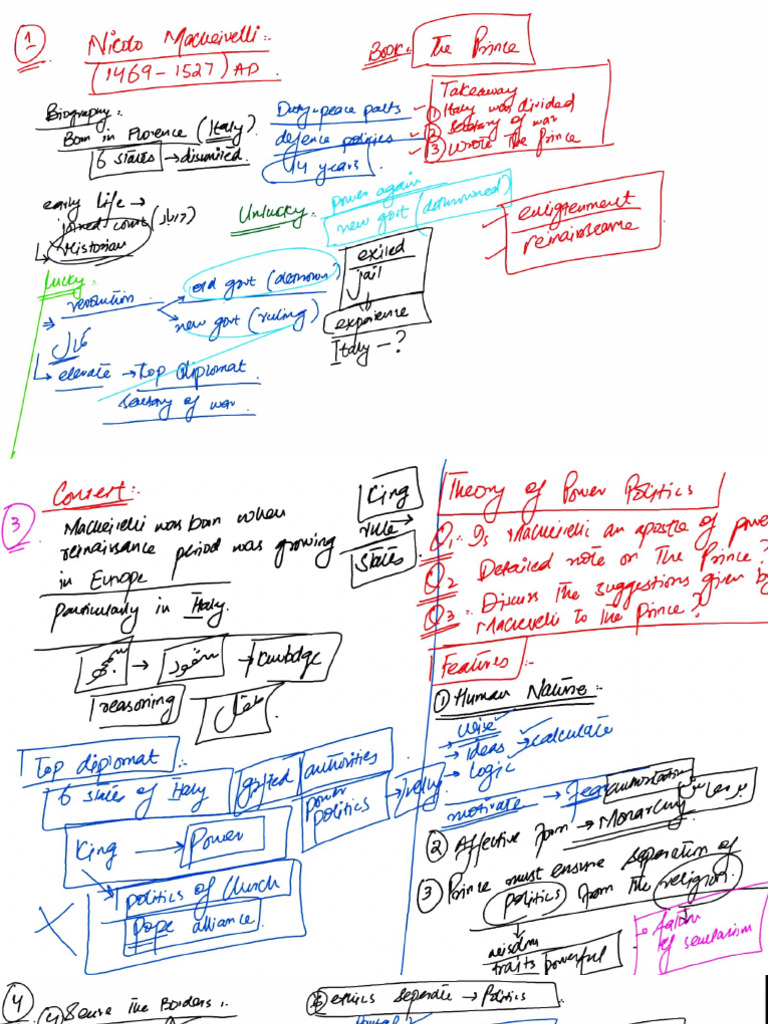 1
Nicolo Macheivelli:-
(1469-1527) AD
Book:- The Prince
Biography:-
Born in Florence (Italy)
6 states → disunited.
Duty → peace pacts
defence politics
14 years
Takeaway
① Italy was divided
② Secratary of war
③ Wrote The Prince
early life →
joined court (دربار)
Historian
Unlucky:-
power again
new govt (downowned)
enlightenment
reinaissance
exiled
jail
experience
Italy - ?
Lucky:-
⇒ revolution
old govt
new govt (ruling)
elevate → top diplomat
Secratary of war
3
Context:-
Macheivelli was born when
reinaissance period was growing
in Europe
particularly in Italy.
King
rule
States
→ → knowledge
reasoning
عقل
Top diplomat
6 states of Italy
gifted authorities
power
politics
King → Power
politics of Church
Pope alliance
Theory of Power Politics
Q1:- Is Macheivelli an apostle of power
Q2 Detailed note on The Prince?
Q3:- Discuss the suggestions given by
Macheivelli to the Prince?
Features:-
① Human Nature:-
→ wise
→ ideas → calculate
→ Logic
motivate → Fear
② Affective form → Monarchy
③ Prince must ensure separation of
politics from the religion.
wisdom
traits powerful
→ father
of secularism
4
(4) Sense The Borders:-
⑥ ethics seperate → Politics